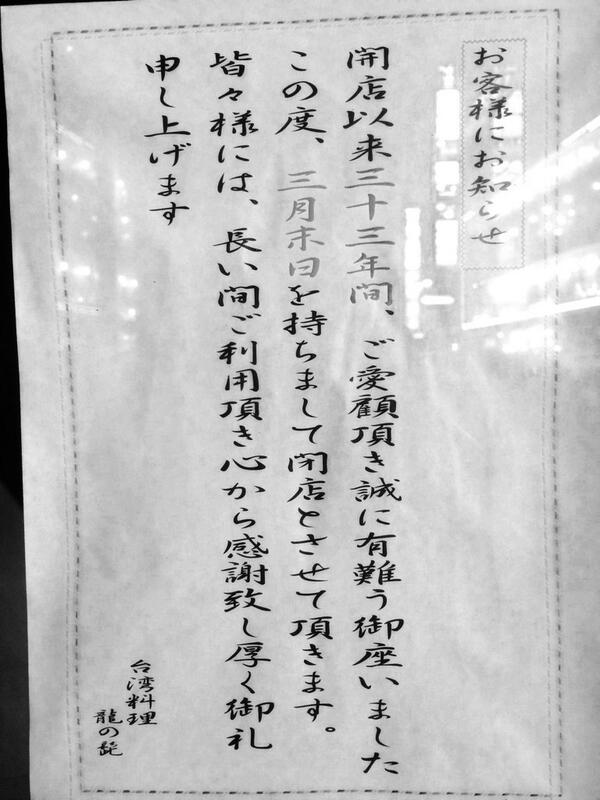 お客様にお知らせ
開店以来三十三年間、ご愛顧頂き誠に有難う御座いました
この度、三月末日を持ちまして閉店とさせて頂きます。
皆々様には、長い間ご利用頂き心から感謝致し厚く御礼
申し上げます
台湾料理
龍の髭